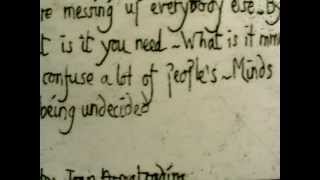 re messing up everybody else ~ By
t is it you need ~ What is it
confuse a lot of People's ~ Minds
being undecided
by Joan Armatrading